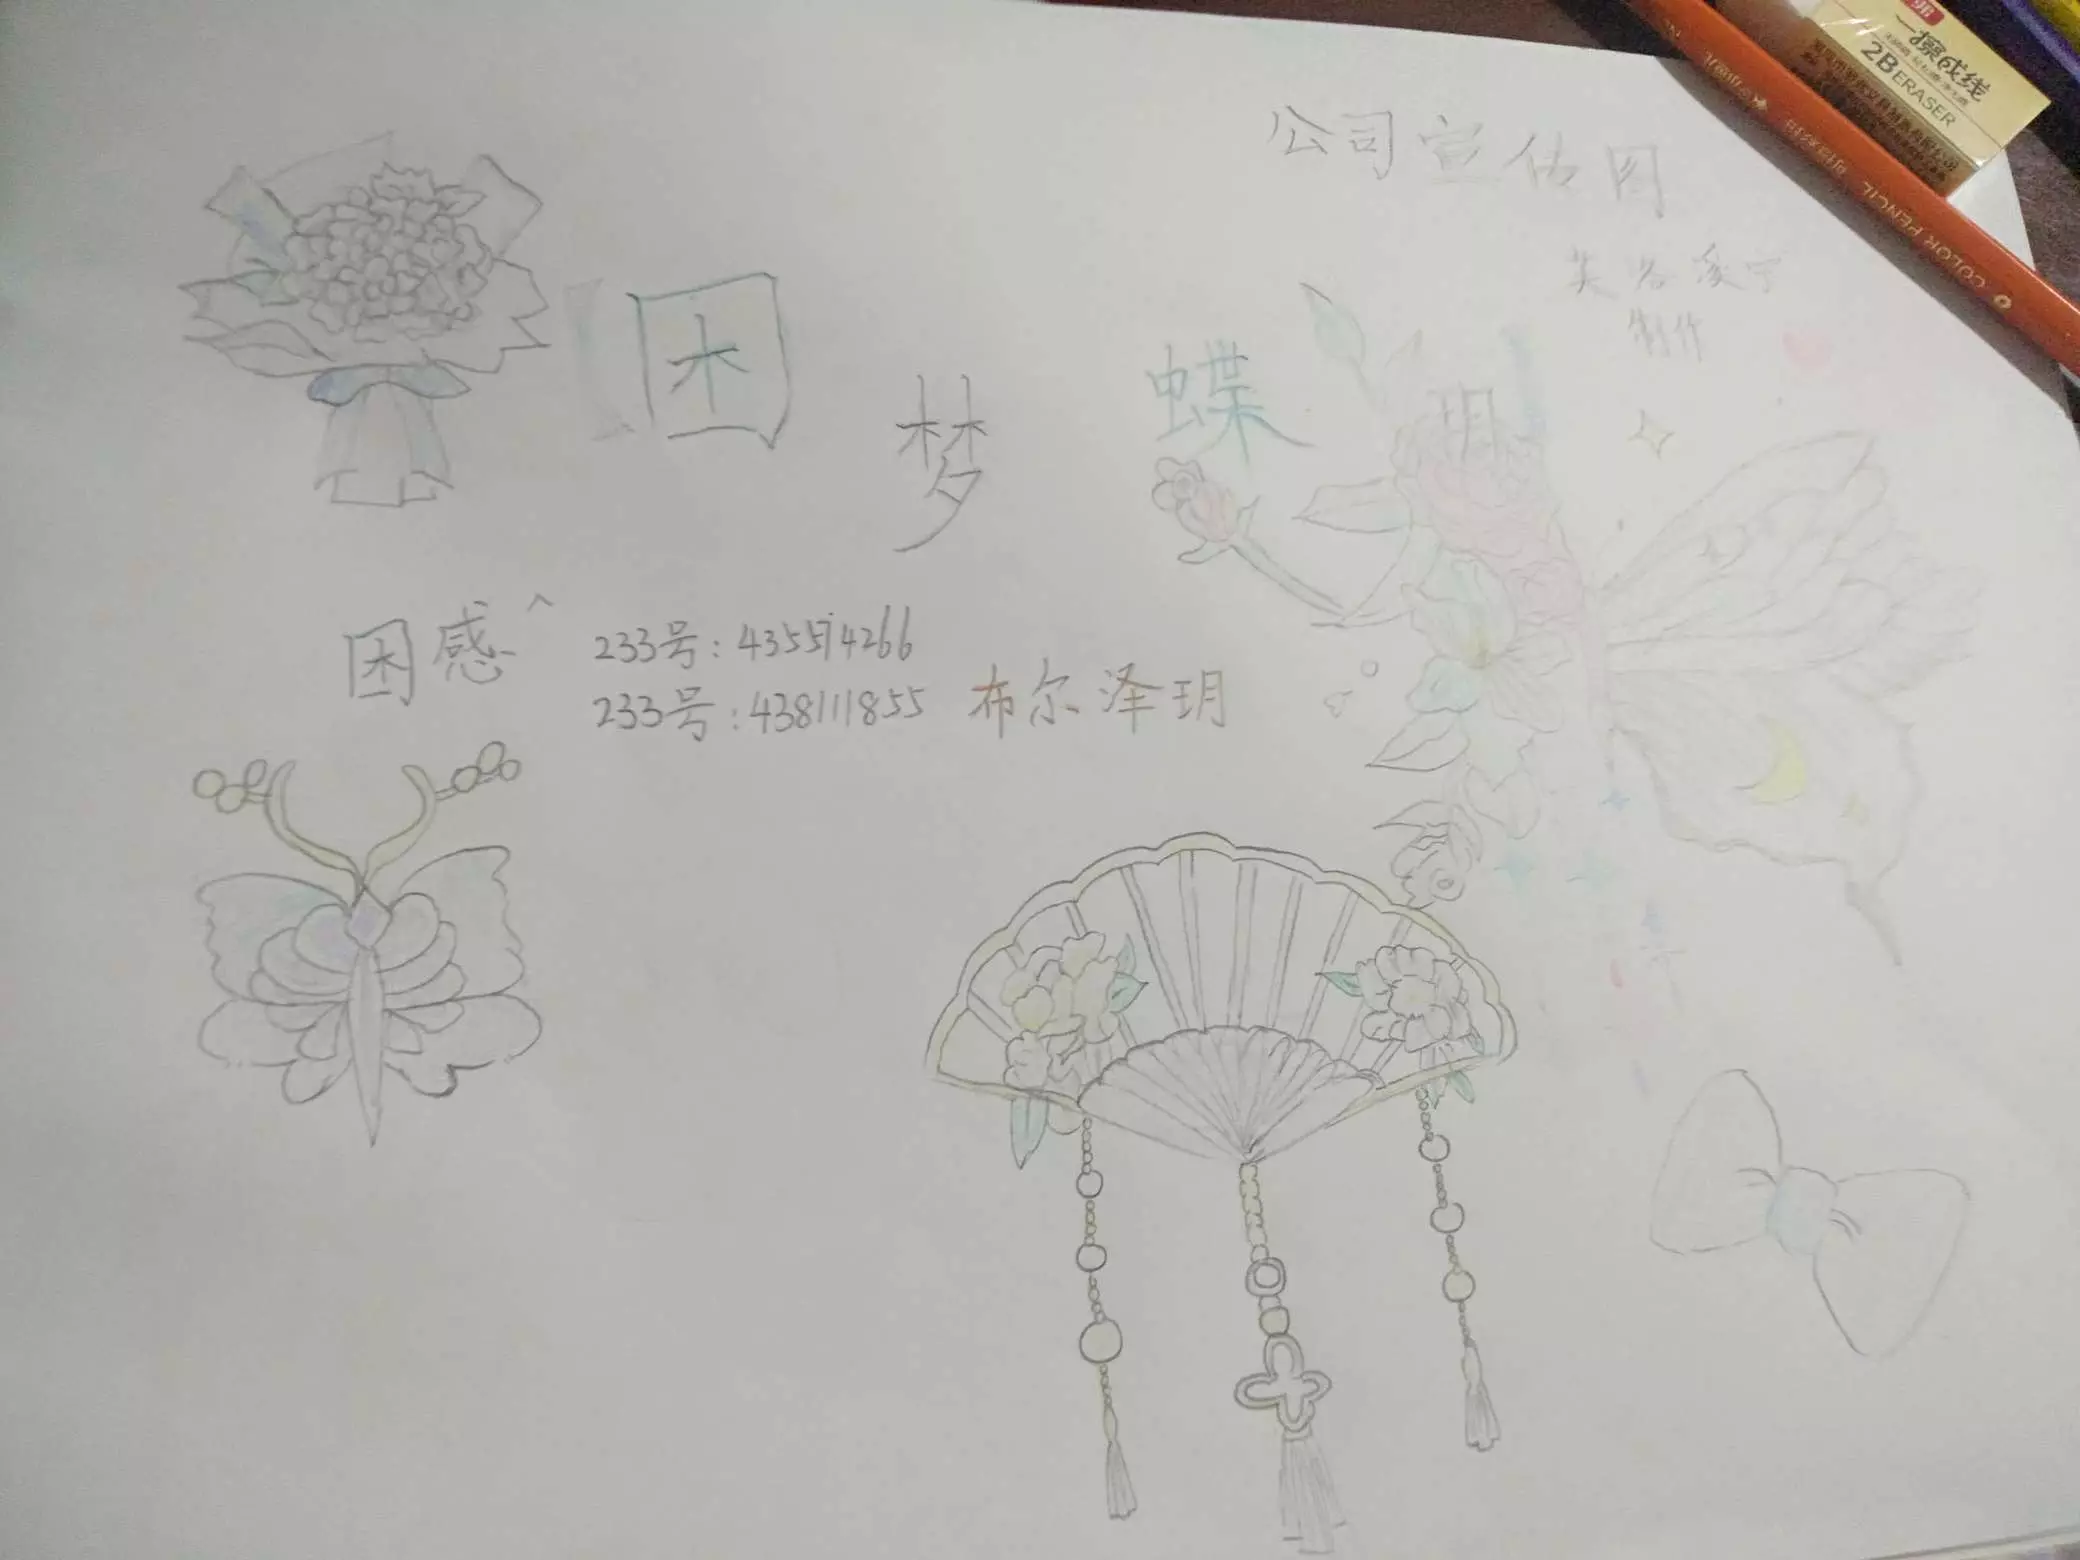 公司宣估图
制作
困
梦
蝶
玥
困感^
233号:435574266
233号:438111855 布尔泽玥
一擦成线
2B ERASER
COLOR PENCIL